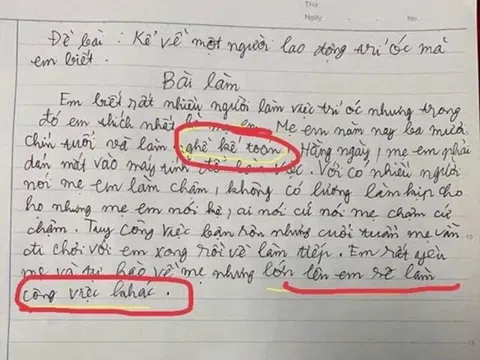 Thứ
Ngày No.
Đề bài : Kể về một người lao động trí óc mà
em biết.
Bài làm
Em biết rất nhiều người làm việc trí óc nhưng trong
đó em thích nhất là mẹ em. Mẹ em năm nay ba mươi
chín tuổi và làm nghề kế toán. Hằng ngày, mẹ em phải
dán mắt vào máy tính để làm việc. Với có nhiều người
nói mẹ em làm chậm, không có lương làm kịp cho
họ nhưng mẹ em nói kệ, ai nói cứ nói mẹ chậm cứ
chậm. Tuy công việc bận rộn nhưng cuối tuần mẹ vẫn
đi chơi với em xong rồi về làm tiếp. Em rất yêu
mẹ và tự hào về mẹ nhưng lớn lên em sẽ làm
công việc khác.